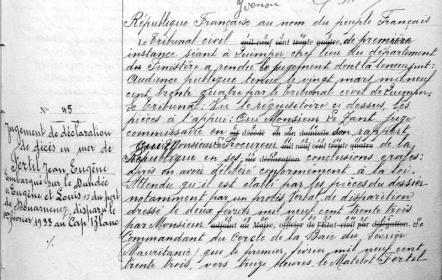 N° 45
Jugement de déclaration
de décès en mer de
Fertil Jean, Eugène
embarqué sur le Dundée
"Eugène et Louis" du port
de Douarnenez, disparu le
1er février 1933 au Cap Blanc
République Française au nom du peuple Français
Le Tribunal civil mil neuf cent trente quatre, de première
instance séant à Quimper, chef lieu du département
du Finistère a rendu le jugement dont la teneur suit:
Audience publique tenue le vingt mars mil neuf
cent trente quatre par le tribunal civil de Quimper
Le tribunal: Vu le requisitoire ci dessus, les
pièces à l'appui: Ouï Monsieur Le Zant juge
commissaire en son rapport,
Ouï Monsieur le Procureur mil neuf cent trente quatre de la
République en ses, conclusions orales:
après en avoir délibéré conformément à la loi.
Attendu qu'il est établi par les pièces du dossier
notamment par un procès verbal de disparition
dressé le deux février mil neuf cent trente trois
par Monsieur adjoint au Maire, officier de l'état civil par délégation, Le
Commandant du Cercle de la Baie du Lévrier
Mauritanie, que le premier février mil neuf cent
trente trois, vers treize heures, le Matelot Fertil